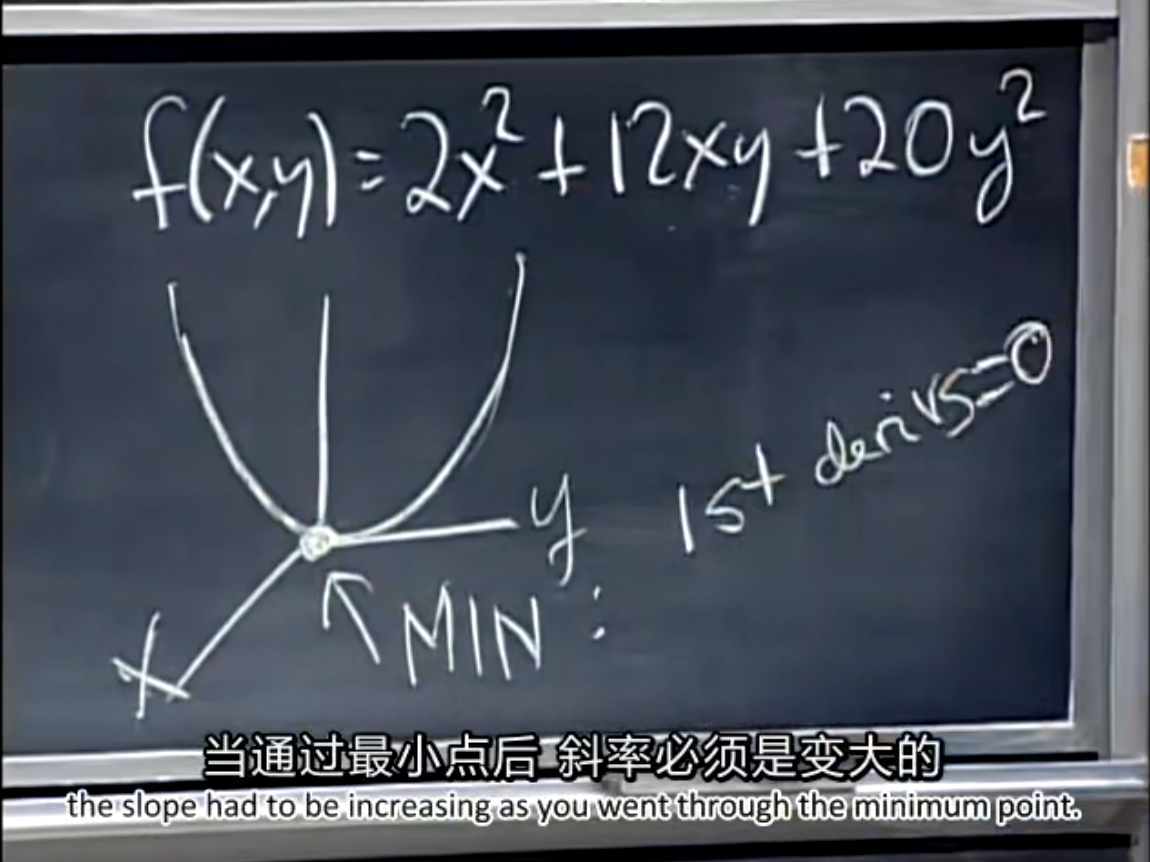 f(x,y)=2x²+12xy+20y²
1st derivs=0
y
MIN:
X
当通过最小点后 斜率必须是变大的
the slope had to be increasing as you went through the minimum point.